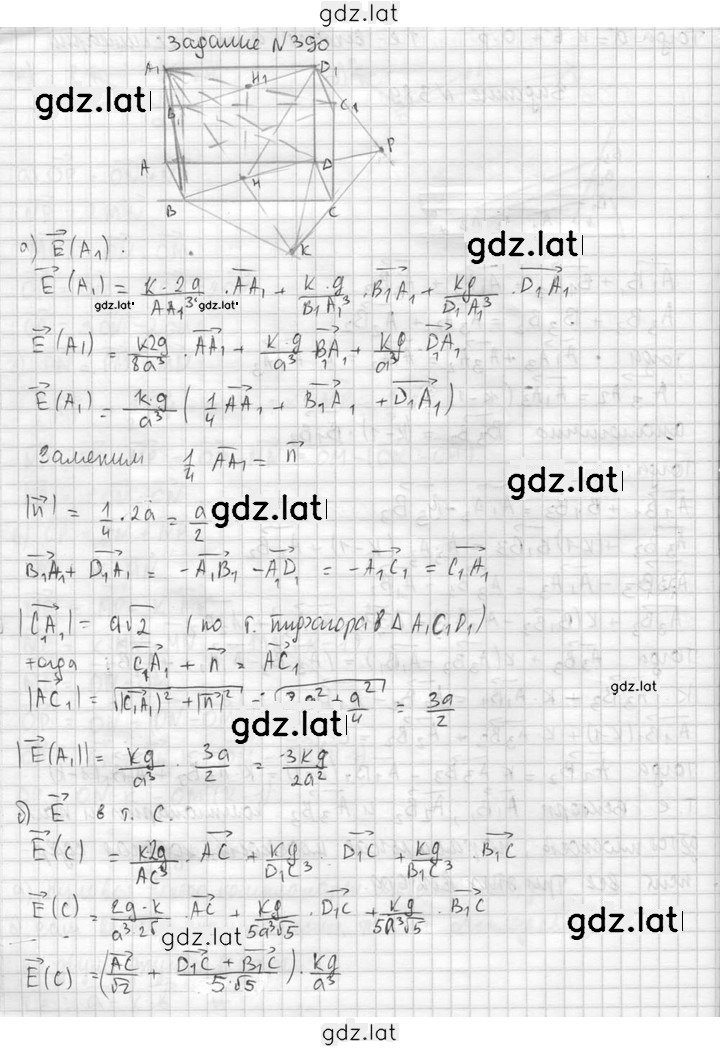 gdz.lat
Задание N390
A₁ H₁ D₁
gdz.lat
B₁ C₁
A D P
H
B C
gdz.lat
K
а) E⃗(A₁):
E⃗(A₁) = k·2q/AA₁³ · AA₁⃗ + k·q/B₁A₁³ · B₁A₁⃗ + kq/D₁A₁³ · D₁A₁⃗
gdz.lat gdz.lat
E⃗(A₁) = k2q/8a³ · AA₁⃗ + k·q/a³ B₁A₁⃗ + kq/a³ · D₁A₁⃗
E⃗(A₁) = k·q/a³ (1/4 AA₁⃗ + B₁A₁⃗ + D₁A₁⃗)
Заменим 1/4 AA₁⃗ = n⃗
gdz.lat
|n⃗| = 1/4 · 2a = a/2
gdz.lat
B₁A₁⃗ + D₁A₁⃗ = -A₁B₁⃗ - A₁D₁⃗ = -A₁C₁⃗ = C₁A₁⃗
|C₁A₁⃗| = a√2 (по т. Пифагора в Δ A₁C₁D₁)
тогда : C₁A₁⃗ + n⃗ = AC₁⃗
gdz.lat
|AC₁⃗| = √(|C₁A₁⃗|² + |n⃗|²) = √(2a² + a²/4) = 3a/2
gdz.lat
|E⃗(A₁)| = kq/a³ · 3a/2 = 3kq/2a²
б) E⃗ в т. C.
E⃗(C) = k2q/AC³ · AC⃗ + kq/D₁C³ · D₁C⃗ + kq/B₁C³ · B₁C⃗
E⃗(C) = 2q·k/a³·2√ · AC⃗ + kq/5a³√5 · D₁C⃗ + kq/5a³√5 · B₁C⃗
gdz.lat
gdz.lat
E⃗(C) = (AC⃗/√2 + D₁C⃗ + B₁C⃗/5·√5) · kq/a³
gdz.lat